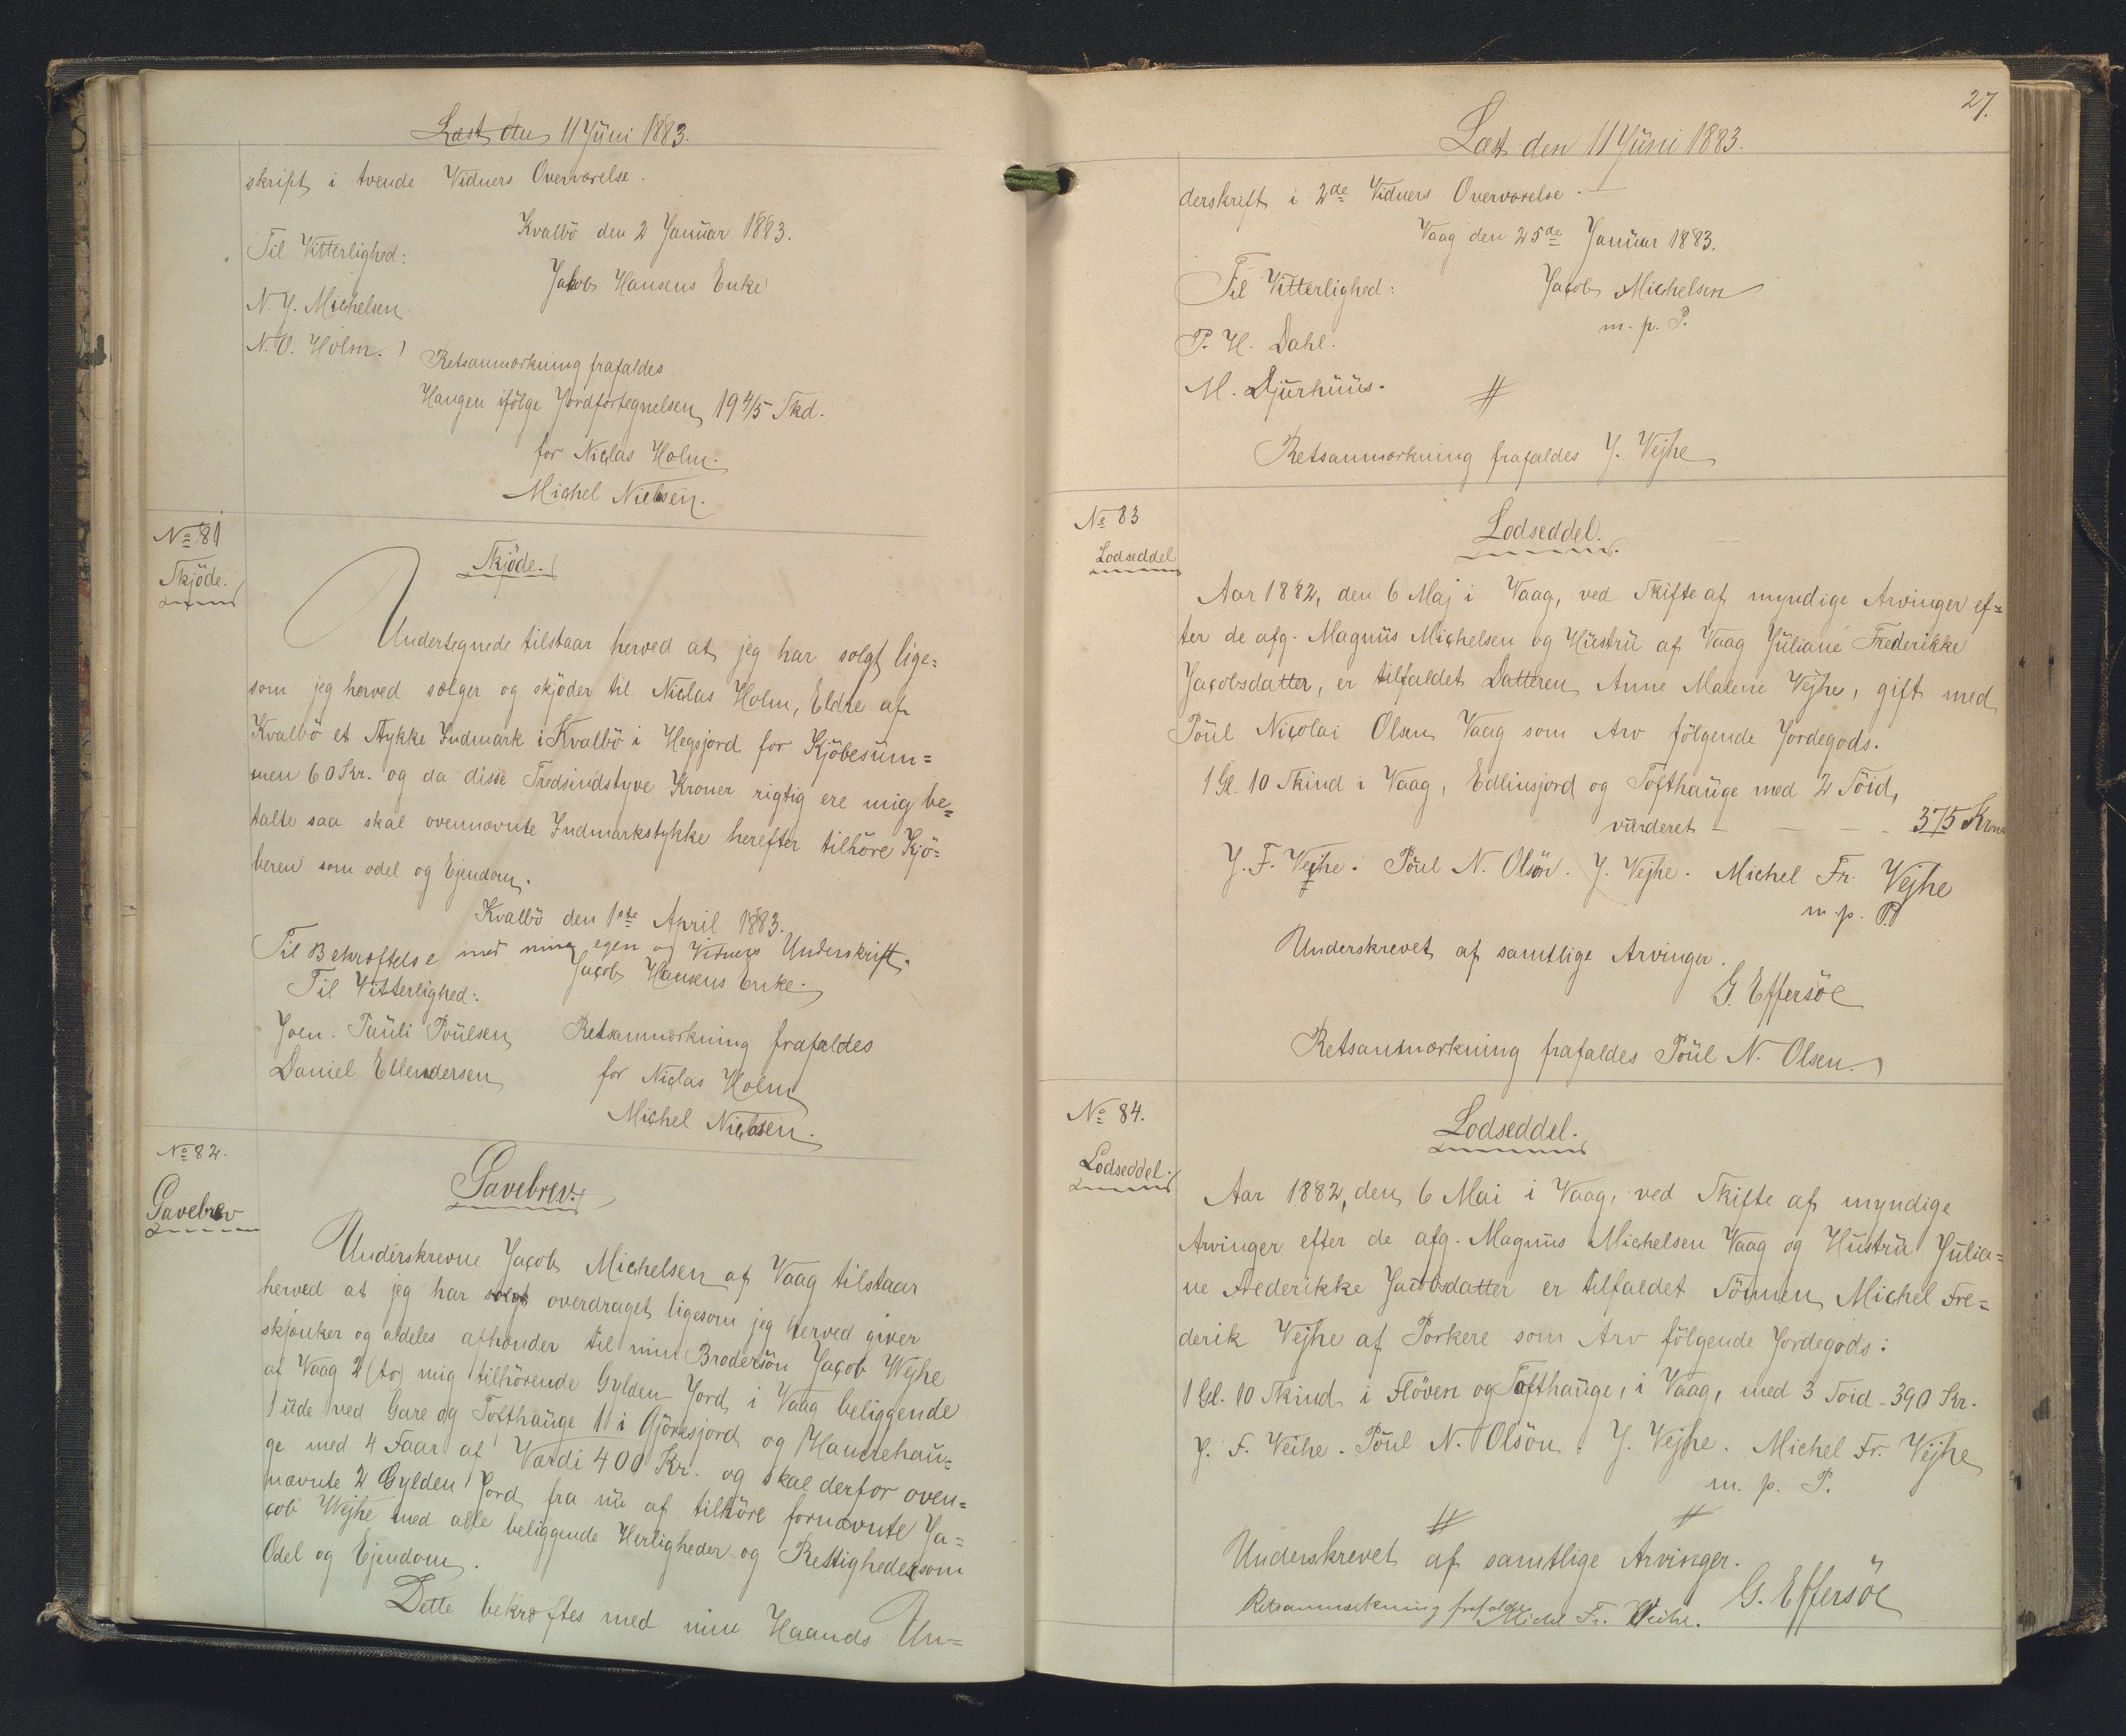 Læst den 11 Juni 1883.
skrift i tvende Vidners Overværelse.
Kvalbö den 2 Januar 1883.
Til Vitterlighed:
Jakob Hansens Enke
N. J. Michelsen.
N. O. Holm.
Retsanmærkning frafaldes
Haugen ifölge Jordfortegnelsen 19 4/5 Skd.
for Niclas Holm.
Michel Nielsen.
No 81
Skjöde.
Skjöde.
Undertegnede tilstaar herved at jeg har solgt lige=
som jeg herved sælger og skjöder til Niclas Holm, Eldre af
Kvalbö et Stykke Indmark i Kvalbö i Hegsjord for Kjöbesum=
men 60 Kr. og da disse Tredsindstyve Kroner rigtig ere mig be=
talte saa skal ovennævnte Indmarkstykke herefter tilhöre Kjö=
beren som odel og Ejendom.
Kvalbö den 1ste April 1883.
Til Bekræftelse med min egen og Vidners Underskrift.
Jacob Hansens Enke.
Til Vitterlighed:
Joen. Pauli Poulsen
Retsanmærkning frafaldes
Daniel Ellendersen
for Niclas Holm
Michel Nielsen.
No 82.
Gavebrev
Gavebrev.
Underskrevne Jacob Michelsen af Vaag tilstaar
herved at jeg har solgt overdraget ligesom jeg herved giver
skjænker og aldeles afhænder til min Brodersön Jacob Wejhe
af Vaag 2 (to) mig tilhörende Gylden Jord i Vaag beliggende
1 ude ved Gare og Tofthauge 1 i Gjörisjord og Hamrehau=
ge med 4 Faar af Værdi 400 Kr. og skal derfor oven=
nævnte 2 Gylden Jord fra nu af tilhöre fornævnte Ja=
cob Wejhe med alle beliggende Herligheder og Rettigheder som
Odel og Ejendom.
Dette bekræftes med min Haands Un=
27.
Læst den 11 Juni 1883.
derskrift i 2de Vidners Overværelse.
Vaag den 25de Januar 1883.
Til Vitterlighed:
Jacob Michelsen
m. p. P.
P. H. Dahl.
M. Djurhuus.
Retsanmærkning frafaldes J. Vejhe
No 83
Lodseddel
Lodseddel.
Aar 1882, den 6 Maj i Vaag, ved Skifte af myndige Arvinger ef=
ter de afg. Magnus Michelsen og Hustru af Vaag Juliane Frederikke
Jacobsdatter, er tilfaldet Datteren Anne Malene Vejhe, gift med
Poul Nicolai Olsen Vaag som Arv fölgende Jordegods.
1 Gl. 10 Skind i Vaag, Edlinsjord og Tofthauge med 2 Söid,
vurderet - - - - 375 Kroner
J. F. Vejhe. Poul N. Olsön. J. Vejhe. Michel Fr. Vejhe
m. p. P.
Underskrevet af samtlige Arvinger.
G. Effersöe
Retsanmærkning frafaldes Poul N. Olsen.
No 84.
Lodseddel.
Lodseddel.
Aar 1882, den 6 Mai i Vaag, ved Skifte af myndige
Arvinger efter de afg. Magnus Michelsen Vaag og Hustru Julia=
ne Frederikke Jacobsdatter er tilfaldet Sönnen Michel Fre=
derik Vejhe af Porkere som Arv fölgende Jordegods:
1 Gl. 10 Skind i Flöven og Tofthauge, i Vaag, med 3 Soid - 390 Kr.
J. F. Veihe. Poul N. Olsön. J. Vejhe. Michel Fr. Vejhe
m. p. P.
Underskrevet af samtlige Arvinger.
G. Effersöe
Retsanmærkning frafaldes Michel Fr. Veihe.